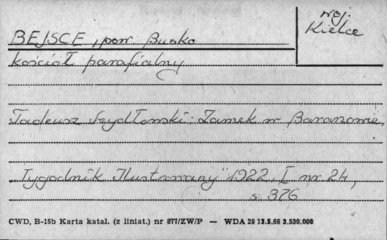 woj.
Kielce
BEJSCE, pow. Busko
kościół parafialny
Tadeusz Szydłowski: Zamek w Baranowie,
"Tygodnik Ilustrowany" 1922, I nr 24,
s. 376
CWD, B-15b Karta katal. (z liniat.) nr 877/ZW/P — WDA 25 12.5.66 2.530.000